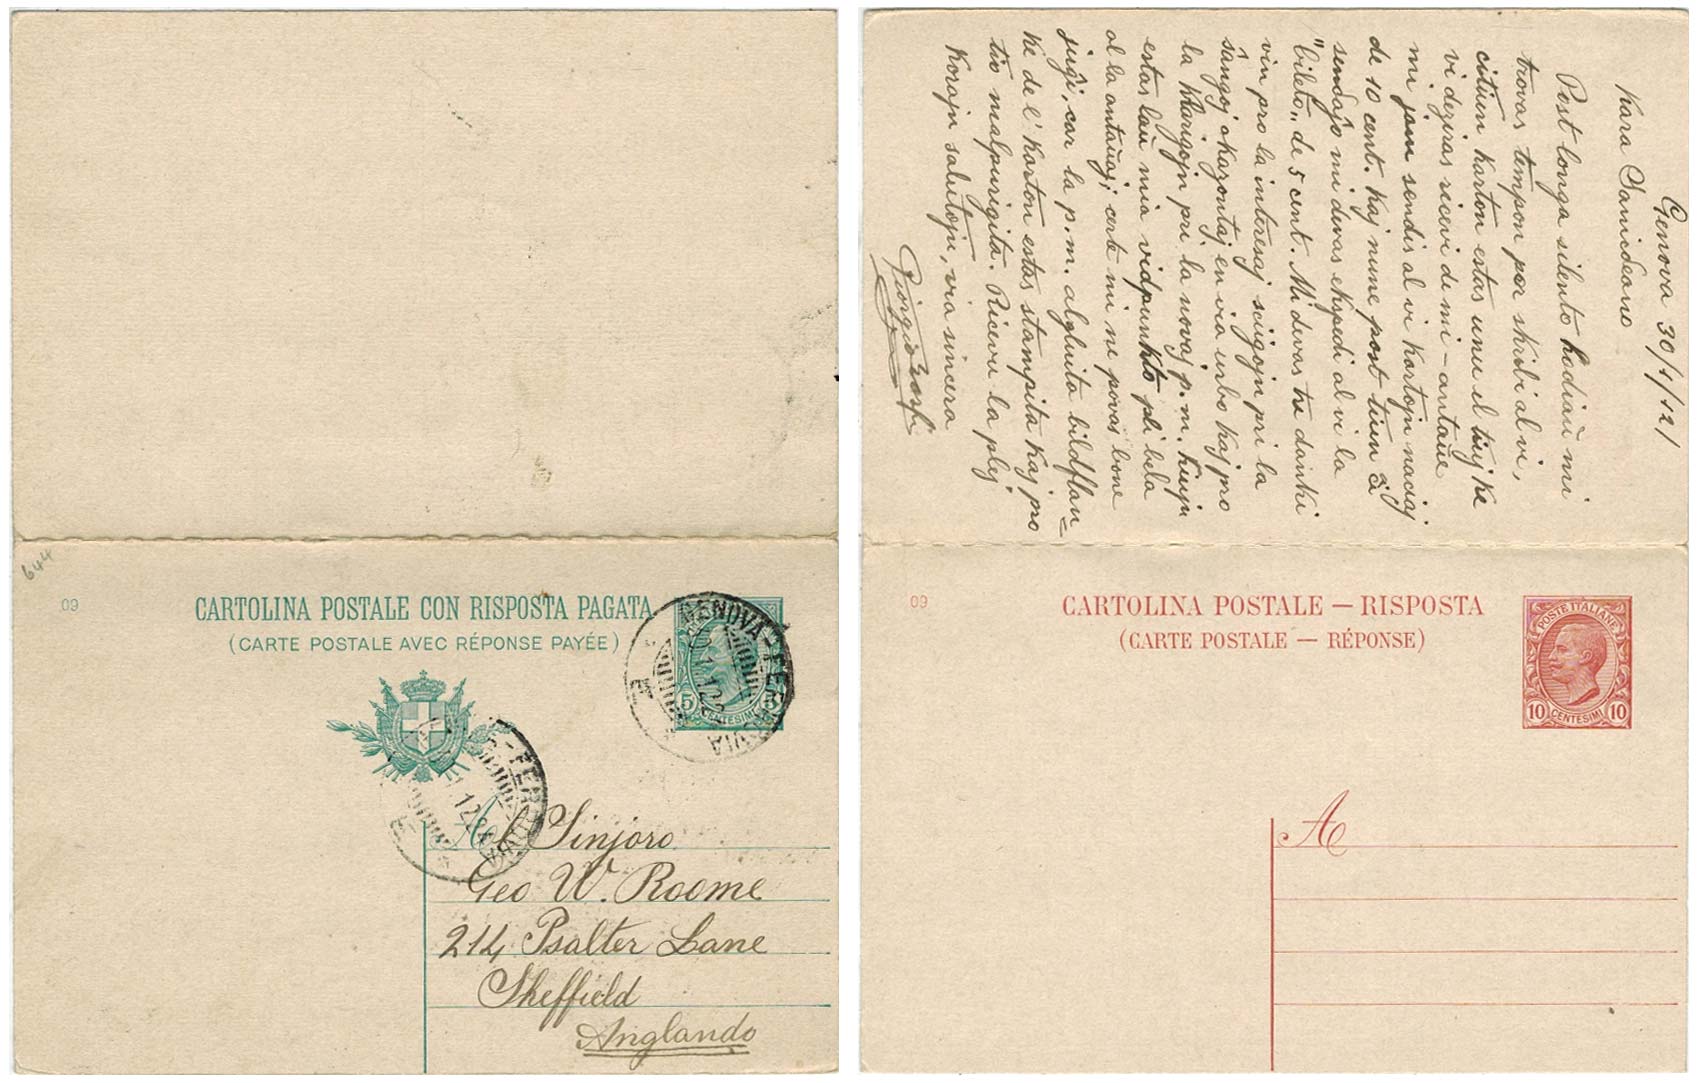 644
09
CARTOLINA POSTALE CON RISPOSTA PAGATA
(CARTE POSTALE AVEC RÉPONSE PAYÉE)
GENOVA-FERROVIA
5 CENTESIMI 5
Al Sinjoro
Geo W. Roome
214 Psalter Lane
Sheffield
Anglando
Genova 30/1/12/
Kara Samideano
Post longa silento hodiaŭ mi
trovas tempon por skribi al vi,
ĉi tiun karton estas unu el tiuj ke
vi deziras ricevi de mi - antaŭe
mi jam sendis al vi kartojn naciaj
de 10 cent. kaj nune post tiun ĉi
sendaĵo mi devas ekspedi al vi la
"bileto„ de 5 cent. Mi devas tre danki
vin pro la interesaj sciigojn pri la
ŝanĝoj okazontaj en via urbo kaj pro
la klarigojn pri la novaj p.m. kiujn
estas laŭ mia vidpunkto pli bela
ol la antaŭaj; certe mi ne povas bone
juĝi, ĉar la p.m. algluita bildflan=
ke de l' karton estas stampita kaj pro
tio malpurigita. Ricevu la plej
korajn salutojn, via sincera
Giorgio
09
CARTOLINA POSTALE — RISPOSTA
(CARTE POSTALE — RÉPONSE)
POSTE ITALIANE
10 CENTESIMI 10
A